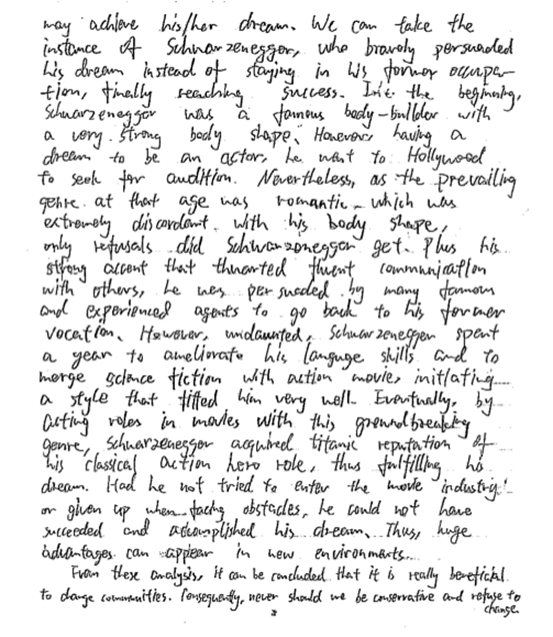 may achieve his/her dream. We can take the
instance of Schwarzenegger, who bravely persuaded
his dream instead of staying in his former occupa-
tion, finally reaching success. In the beginning,
Schwarzenegger was a famous body-builder with
a very strong body shape. However, having a
dream to be an actor, he went to Hollywood
to seek for audition. Nevertheless, as the prevailing
genre at that age was romantic - which was
extremely discordant with his body shape,
only refusals did Schwarzenegger get. Plus his
strong accent that thwarted fluent communication
with others, he was persuaded by many famous
and experienced agents to go back to his former
vocation. However, undaunted, Schwarzenegger spent
a year to ameliorate his language skills and to
merge science fiction with action movie, initiating
a style that fitted him very well. Eventually, by
acting roles in movies with this groundbreaking
genre, Schwarzenegger acquired titanic reputation of
his classical action hero role, thus fulfilling his
dream. Had he not tried to enter the movie industry
or given up when facing obstacles, he could not have
succeeded and accomplished his dream. Thus, huge
advantages can appear in new environments.
From these analysis, it can be concluded that it is really beneficial
to change communities. Consequently, never should we be conservative and refuse to
change.